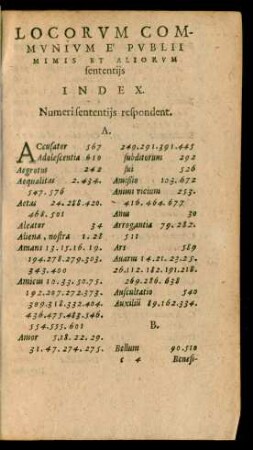 LOCORVM COM-
MVNIVM E PVBLII
MIMIS ET ALIORVM
sententijs
INDEX.
Numeri sententijs respondent.
A.
ACcusator 567
Adolescentia 610
Aegrotus 242
Aequalitas 2.434.
547.576
Aetas 24.288.420.
468.501
Aleator 34
Aliena, nostra 1.28
Amans 13.15.16.19.
194.278.279.303.
343.400
Amicus 10.33.52.75.
192.207.272.373.
309.318.332.404.
436.475.483.546.
554.555.601
Amor 5.18.22.29.
31.47.274.275.
249.291.391.445
subditorum 292
sui 526
Amissio 103.672
Animi vicium 253.
416.464.677
Anus 30
Arrogantia 79.282.
511
Ars 589
Auarus 14.21.23.25.
26.112.182.191.218.
269.286.638
Auscultatio 540
Auxilium 89.162.334.
B.
Bellum 90.510
c 4 Benefi-